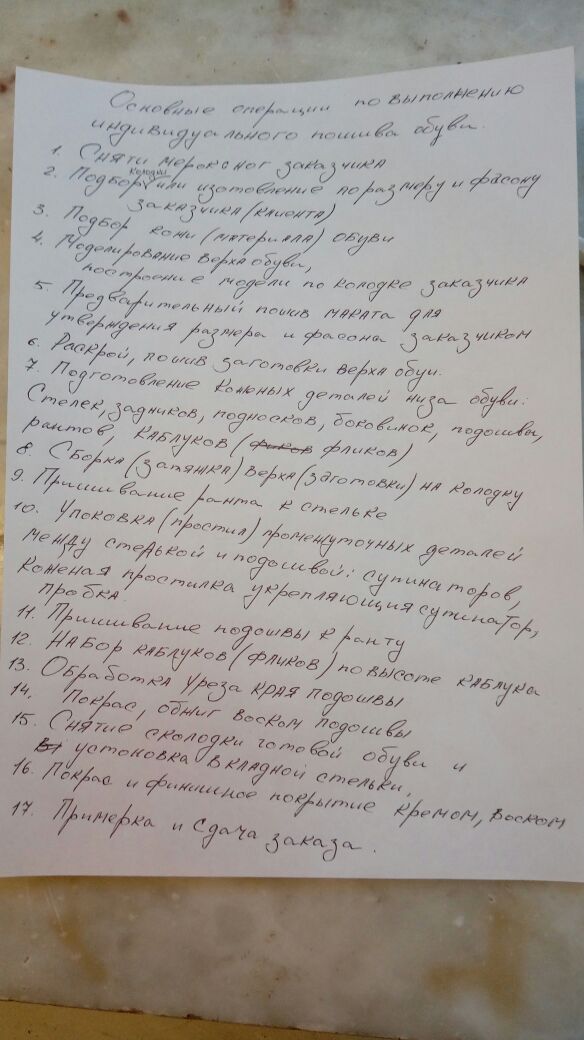 Основные операции по выполнению
индивидуального пошива обуви.
1. Сняти мерок с ног заказчика
2. Подбор колодки или изготовление по размеру и фасону
заказчика (клиента)
3. Подбор кожи (материала) обуви
4. Моделирование верха обуви,
построение модели по колодке заказчика
5. Предварительный пошив маката для
утверждения размера и фасона заказчиком
6. Раскрой, пошив заготовки верха обуи.
7. Подготовление коженых деталей низа обуви:
Стелек, задников, подносков, боковинок, подошвы,
рантов, каблуков (фиков фликов)
8. Сборка (затяжка) верха (заготовки) на колодку
9. Пришивание ранта к стельке
10. Упоковка (простил) промежуточных деталей
между стелькой и подошвой: супинаторов,
коженая простилка укрепляющия супинатор,
пробка.
11. Пришивание подошвы к ранту
12. Набор каблуков (фликов) по высоте каблука
13. Обработка уреза края подошвы
14. Покрас, обжиг воском подошвы
15. Снятие с колодки готовой обуви и
установка вкладной стельки,
16. Покрас и финишное покрытие кремом, воском
17. Примерка и сдача заказа.